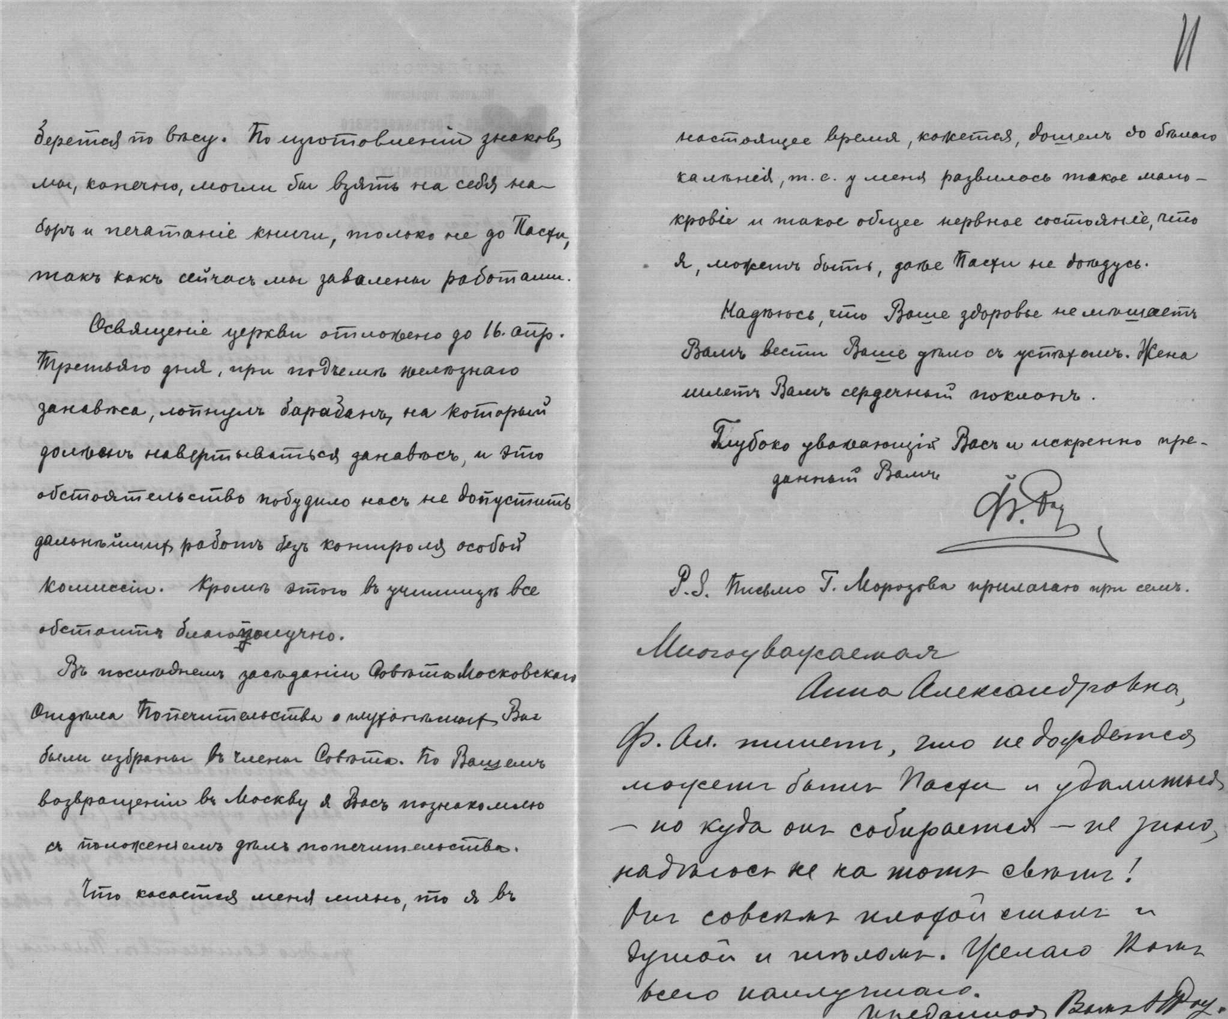 берется по вѣсу. По изготовленіи знаковъ
мы, конечно, могли бы взять на себя на-
боръ и печатаніе книги, только не до Пасхи,
такъ какъ сейчасъ мы завалены работами.
Освященіе церкви отложено до 16. апр.
Третьяго дня, при подъемѣ желѣзнаго
занавѣса, лопнулъ барабанъ, на который
долженъ навертываться занавѣсъ, и это
обстоятельство побудило насъ не допустить
дальнѣйшихъ работъ безъ контроля особой
комиссіи. Кромѣ этого въ училищѣ все
обстоитъ благополучно.
Въ послѣднемъ засѣданіи Совѣта Московскаго
Отдѣла Попечительства о глухонѣмыхъ Вы
были избраны въ члены Совѣта. По Вашемъ
возвращеніи въ Москву я Васъ познакомлю
съ положеніемъ дѣлъ попечительства.
Что касается меня лично, то я въ
11
настоящее время, кажется, дошелъ до бѣлаго
каленія, т.е. у меня развилось такое мало-
кровіе и такое общее нервное состояніе, что
я, можетъ быть, даже Пасхи не дождусь.
Надѣюсь, что Ваше здоровье не мѣшаетъ
Вамъ вести Ваше дѣло съ успѣхомъ. Жена
шлетъ Вамъ сердечный поклонъ.
Глубоко уважающій Васъ и искренно пре-
данный Вамъ
Ф. Рау
P.S. Письмо Г. Морозова прилагаю при семъ.
Многоуважаемая
Анна Александровна,
Ф. Ал. пишетъ, что не дождется
можетъ быть Пасхи и удалиться
— но куда онъ собирается — не знаю,
надѣюсь не на тотъ свѣтъ!
Онъ совсѣмъ плохой сталъ и
душой и тѣломъ. Желаю Вамъ
всего наилучшаго.
Преданная Вамъ Н Рау.